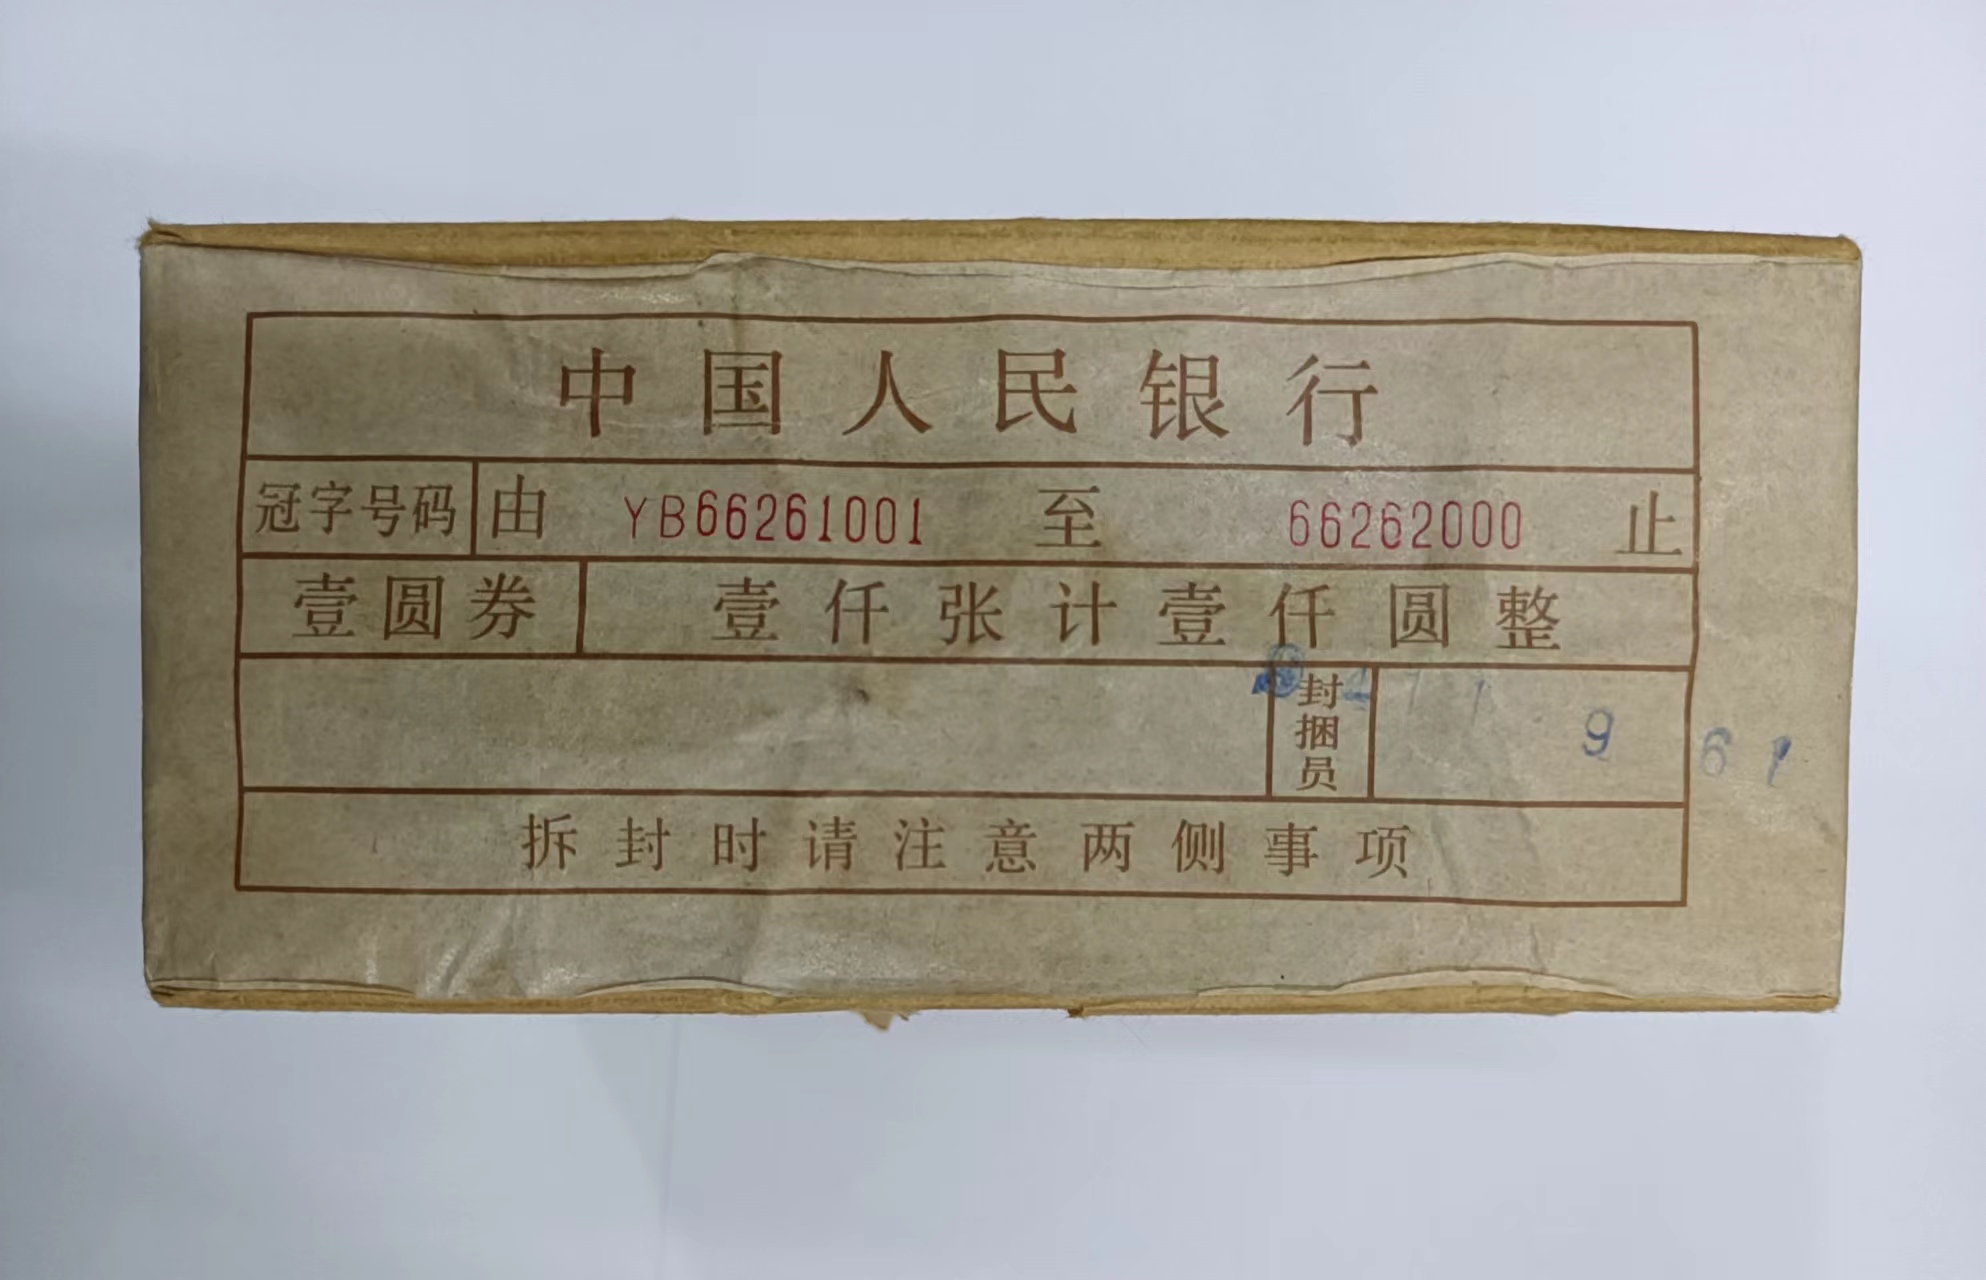 中国人民银行
冠字号码 由 YB66261001 至 66262000 止
壹圆券 壹仟张计壹仟圆整
封捆员 9 61
拆封时请注意两侧事项